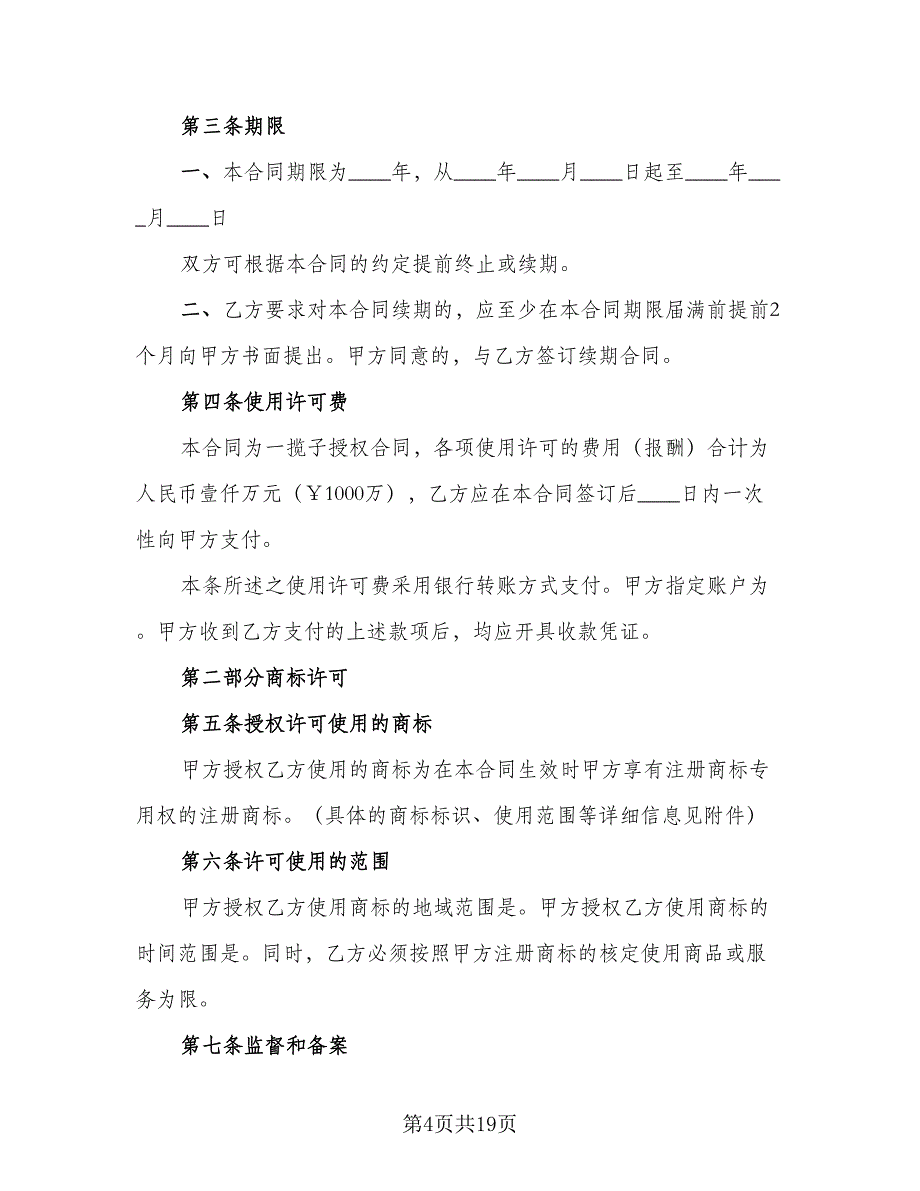 第三条期限
一、本合同期限为____年，从____年____月____日起至____年___
_月____日
双方可根据本合同的约定提前终止或续期。
二、乙方要求对本合同续期的，应至少在本合同期限届满前提前2
个月向甲方书面提出。甲方同意的，与乙方签订续期合同。
第四条使用许可费
本合同为一揽子授权合同，各项使用许可的费用（报酬）合计为
人民币壹仟万元（￥1000万），乙方应在本合同签订后____日内一次
性向甲方支付。
本条所述之使用许可费采用银行转账方式支付。甲方指定账户为
。甲方收到乙方支付的上述款项后，均应开具收款凭证。
第二部分商标许可
第五条授权许可使用的商标
甲方授权乙方使用的商标为在本合同生效时甲方享有注册商标专
用权的注册商标。（具体的商标标识、使用范围等详细信息见附件）
第六条许可使用的范围
甲方授权乙方使用商标的地域范围是。甲方授权乙方使用商标的
时间范围是。同时，乙方必须按照甲方注册商标的核定使用商品或服
务为限。
第七条监督和备案
第4页共19页